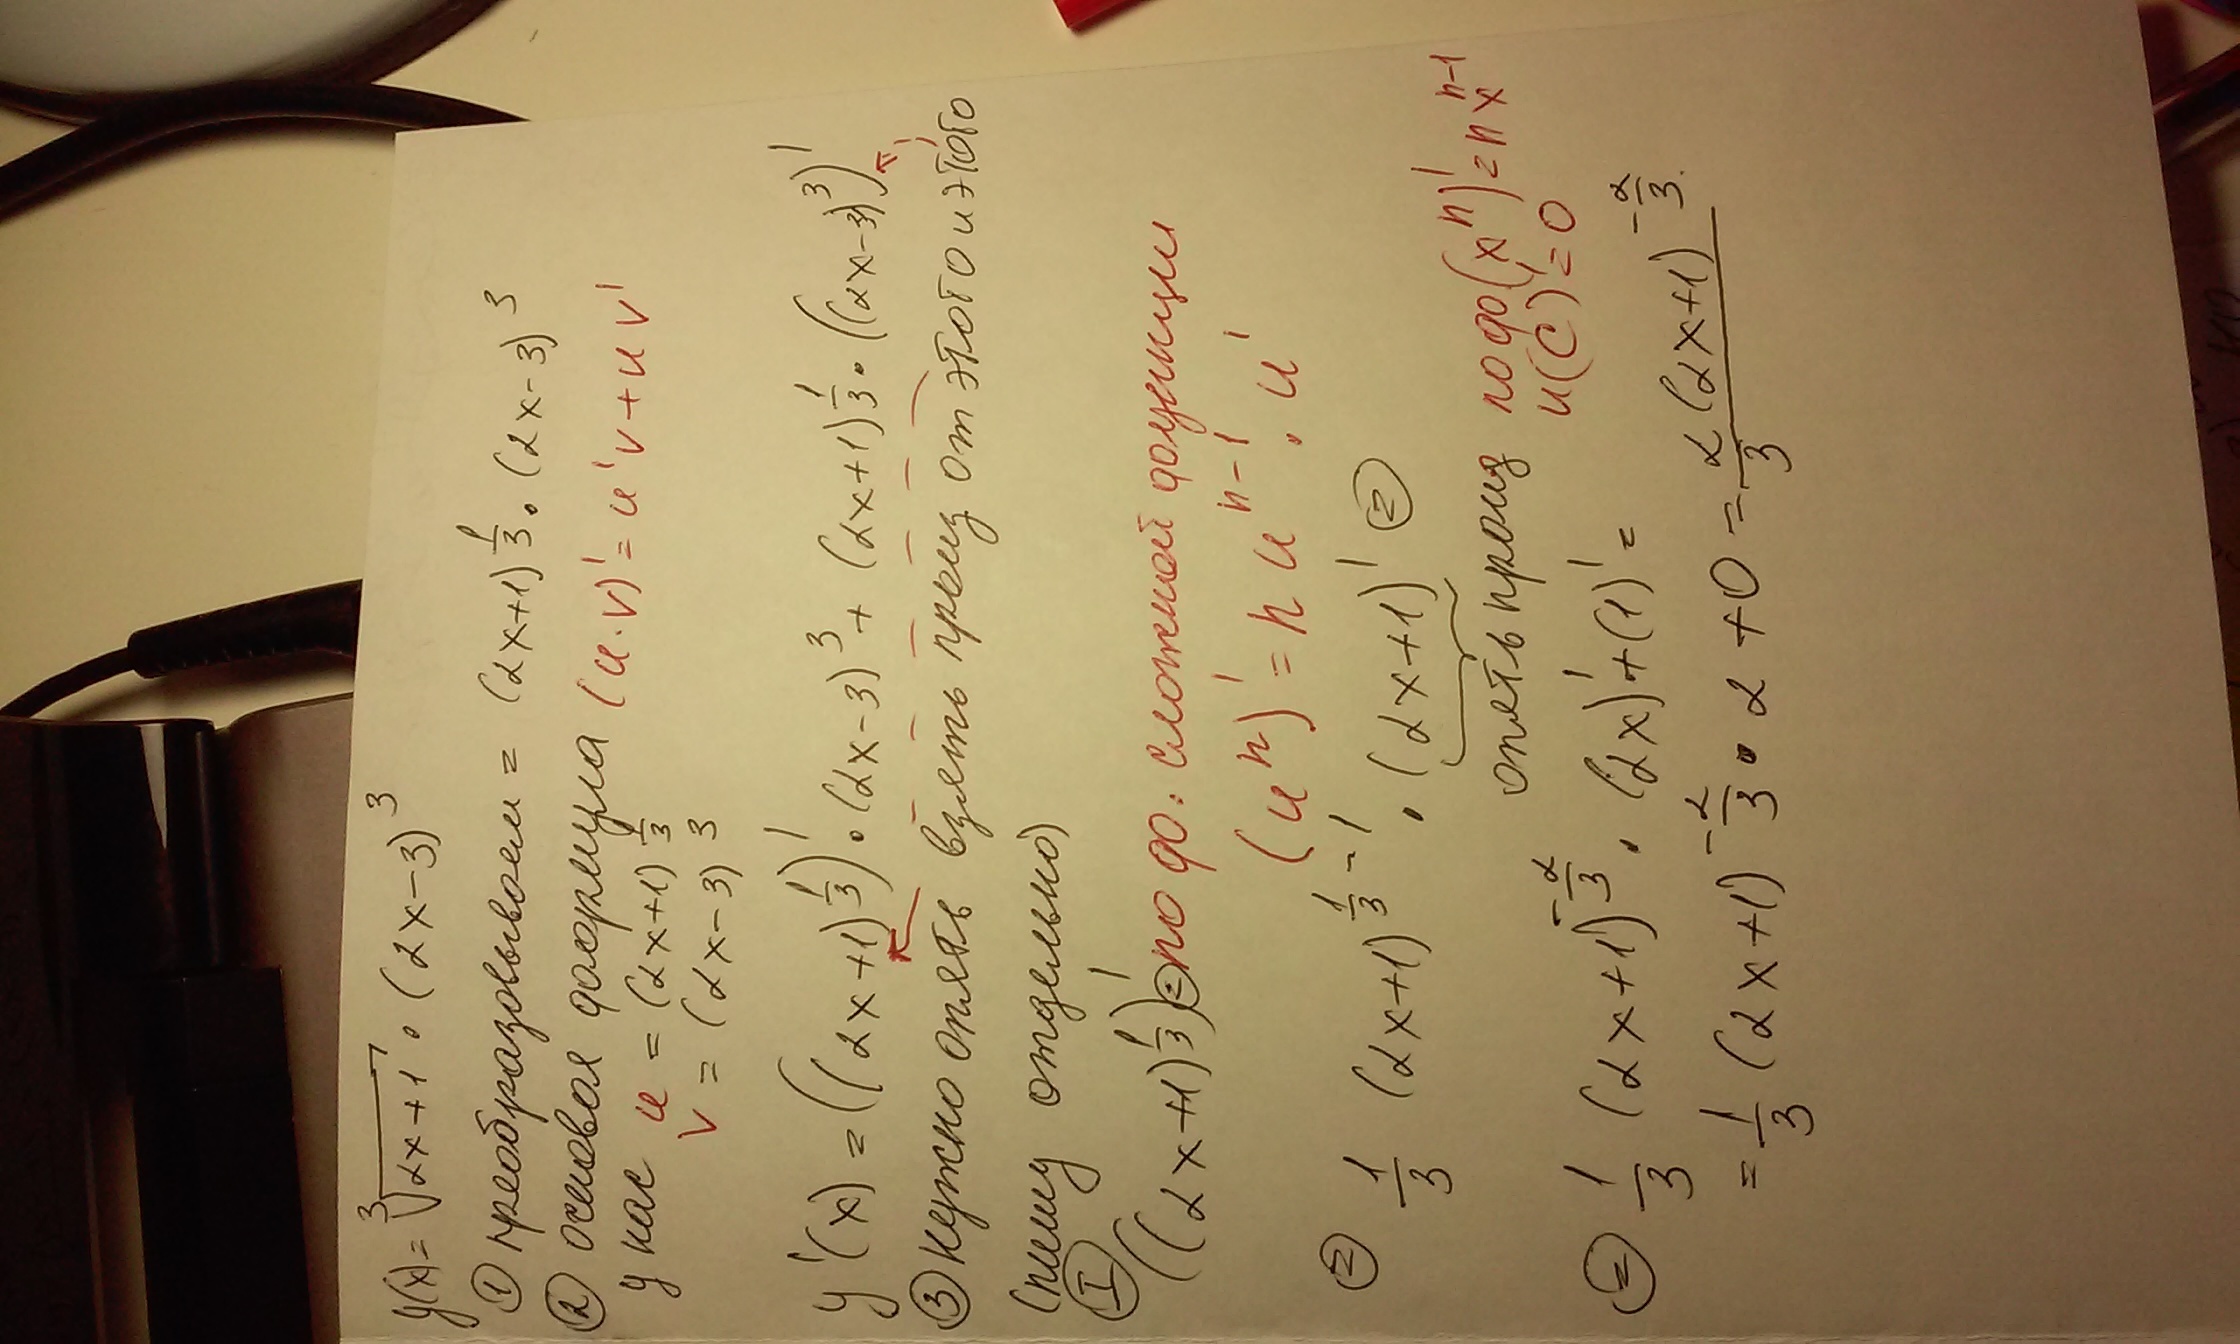 y(x) = ∛(2x+1) · (2x-3)³
① преобразовываем = (2x+1)^(1/3) · (2x-3)³
② основая формула (u·v)' = u'v + uv'
у нас u = (2x+1)^(1/3)
v = (2x-3)³
y'(x) = ((2x+1)^(1/3))' · (2x-3)³ + (2x+1)^(1/3) · ((2x-3)³)'
③ нужно опять взять произ от этого и этого
(пишу отдельно)
Ⅰ
((2x+1)^(1/3))' = по ф. сложной функции
(uⁿ)' = n uⁿ⁻¹ · u'
= 1/3 (2x+1)^(1/3 - 1) · (2x+1)' =
опять произ по ф (xⁿ)' = n xⁿ⁻¹
и (C)' = 0
= 1/3 (2x+1)^(-2/3) · (2x)' + (1)' =
= 1/3 (2x+1)^(-2/3) · 2 + 0 = 2(2x+1)^(-2/3) / 3